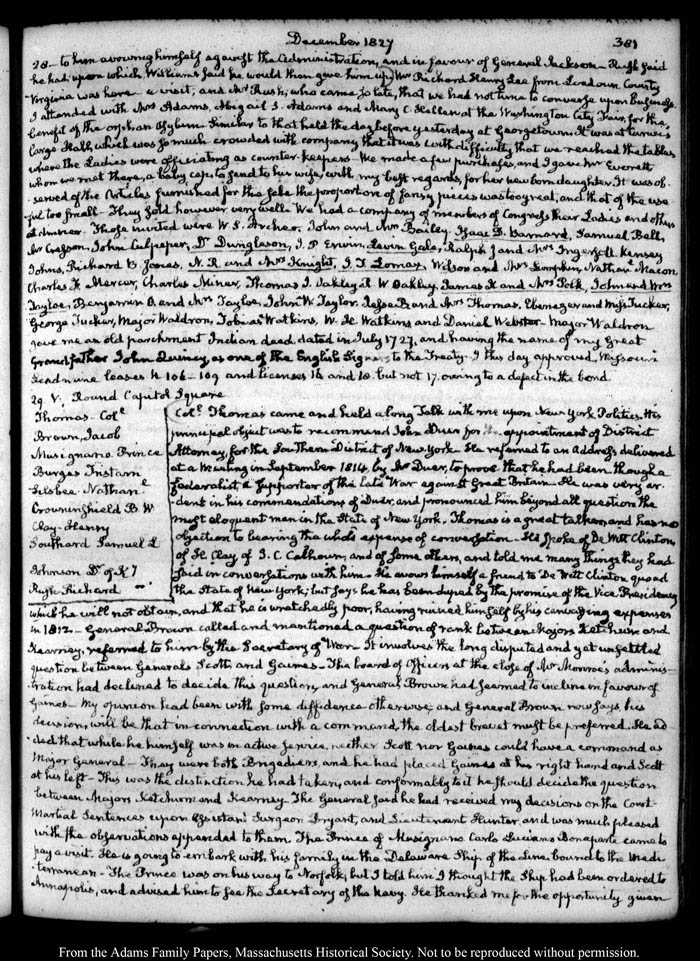 December 1827
381
28— to him avowing himself against the Administration, and in favour of General Jackson— Rush said
he had; upon which Williams said he would then give him up. Mr Richard Henry Lee from Loudoun County
Virginia was here a visit; and Mr Rush, who came so late, that we had not time to converse upon business.
I attended with Mrs Adams, Abigail S. Adams and Mary C. Hellen at the Washington City Fair, for the
benefit of the orphan Asylum similar to that held the day before yesterday at Georgetown. It was at Carusi's
large Hall, which was so much crowded with company that it was with difficulty that we reached the tables
where the Ladies were officiating as counter-keepers. We made a few purchases, and I gave Mr Everett
whom we met there, a baby cap to send to his wife, with my best regards, for her new born daughter. It was ob-
served of the Articles furnished for the sale the proportion of fancy pieces was too great, and that of the use-
ful too small— They sold however very well. We had a company of members of Congress their Ladies and others
at dinner. Those invited were W. S. Archer, John and Mrs Bailey, Isaac D. Barnard, Samuel Bell,
Mr Cresson, John Culpeper, Dr Dunglison, J. P. Erwin, Levin Gale, Ralph J and Mrs Ingersoll, Kensey
Johns, Richard B. Jones, N. R and Mrs Knight, J. T Lomax, Wilson and Mrs Lumpkin, Nathanl Macon
Charles F. Mercer, Charles Miner, Thomas J. Oakley, R W Oakley, James K and Mrs Polk, John and Mrs
Tayloe, Benjamin O. and Mrs Tayloe, John W. Taylor, Jesse B and Mrs Thomas, Ebenezer and Miss Tucker,
George Tucker, Major Waldron, Tobias Watkins, W. H. Watkins and Daniel Webster. Major Waldron
gave me an old parchment Indian deed, dated in July 1727, and having the name of my Great
Grandfather John Quincy, as one of the English Signers to the Treaty. I this day approved, Missouri
Lead mine leases N. 106–109 and licenses 16 and 18. but not 17, owing to a defect in the bond.
29. V: Round Capitol Square
Thomas— Cole
Brown, Jacob
Musignano Prince
Burges Tristam
Silsbee— Nathanl
Crowninshield B W
Clay— Henry
Southard Samuel L
Johnson Dr of Ky
Rush Richard
Cole Thomas came and held a long Talk with me upon New York Politics. His
principal object was to recommend John Duer for the appointment of District
Attorney, for the Southern District of New York. He referred to an address delivered
at a Meeting in September 1814, by Mr Duer, to prove that he had been though a
Federalist a supporter of the late War against Great Britain. He was very ar-
dent in his commendations of Duer, and pronounced him beyond all question the
most eloquent man in the State of New York. Thomas is a great talker, and has no
objection to bearing the whole expense of conversation. He spoke of De Witt Clinton,
of H. Clay, of J. C. Calhoun, and of some others, and told me many things they had
said in conversations with him— He avows himself a friend to De Witt Clinton quoad
the State of New York; but says he has been duped by the promise of the Vice Presidency
which he will not obtain, and that he is wretchedly poor, having ruined himself by his canvassing expenses
in 1812— General Brown called and mentioned a question of rank between Majors Ketchum and
Kearney, referred to him by the Secretary of War. It involves the long disputed and yet unsettled
question between Generals Scott and Gaines— The board of Officers at the close of Mr Monroe's adminis-
tration had declined to decide this question, and General Brown had seemed to incline in favour of
Gaines— My opinion had been with some diffidence otherwise; and General Brown now says, his
decision will be that in connection with a command, the oldest brevet must be preferred. He ad-
ded that while he himself was in active service, neither Scott nor Gaines could have a command as
Major General— They were both Brigadiers, and he had placed Gaines at his right hand and Scott
at his left— This was the distinction he had taken, and conformably to it he should decide the question
between Majors Ketchum and Kearney. The General said he had received my decisions on the Court-
Martial Sentences upon Assistant Surgeon Bryant, and Lieutenant Hunter, and was much pleased
with the observations appended to them. The Prince of Musignano Carlo Luciano Bonaparte came to
pay a visit. He is going to embark with his family in the Delaware Ship of the Line bound to the Medi-
terranean— The Prince was on his way to Norfolk; but I told him I thought the Ship had been ordered to
Annapolis, and advised him to see the Secretary of the Navy. He thanked me for the opportunity given
From the Adams Family Papers, Massachusetts Historical Society. Not to be reproduced without permission.